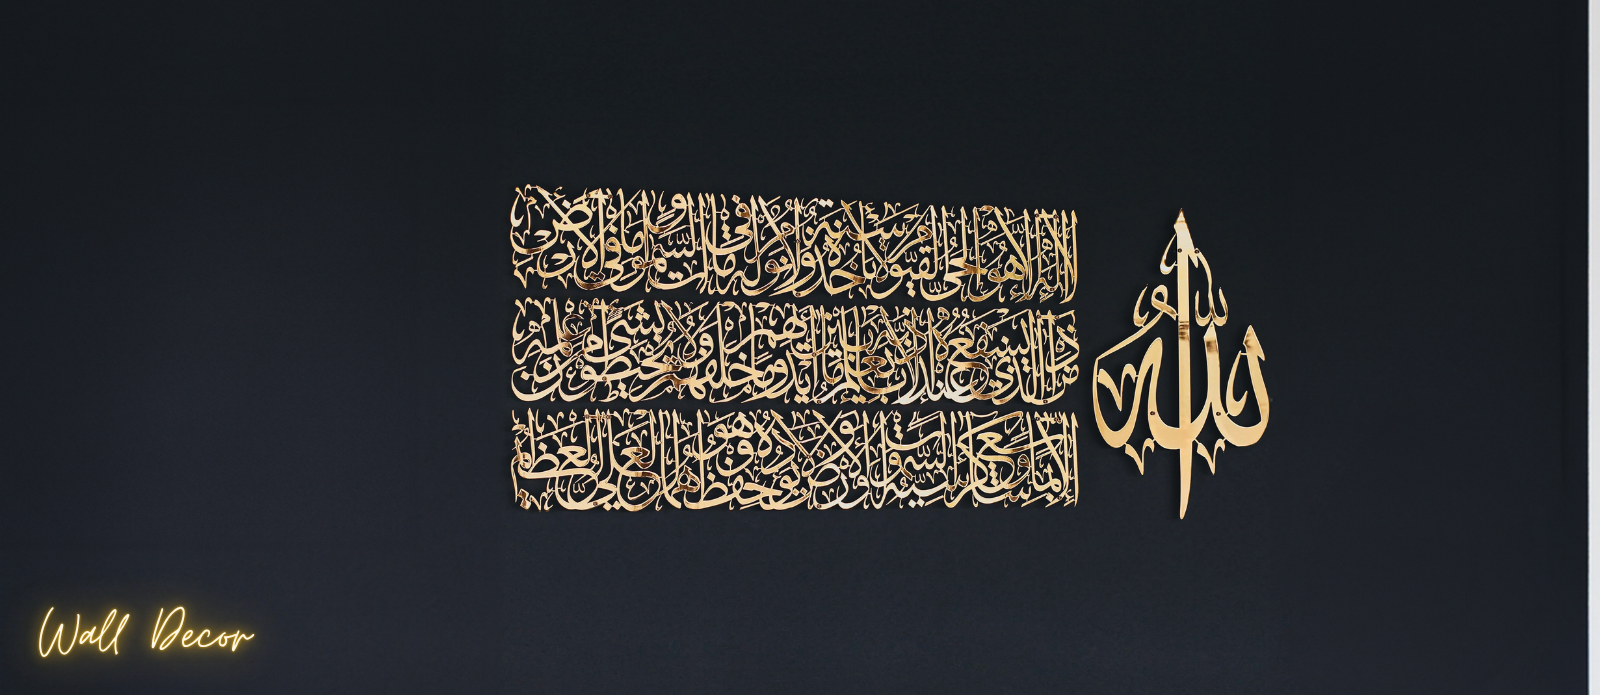 الله
لا إله إلا هو الحي القيوم لا تأخذه سنة ولا نوم له ما في السموت وما في الأرض
من ذا الذي يشفع عنده إلا بإذنه يعلم ما بين أيديهم وما خلفهم ولا يحيطون بشيء من علمه
إلا بما شاء وسع كرسيه السموت والأرض ولا يؤده حفظهما وهو العلي العظيم
Wall Decor